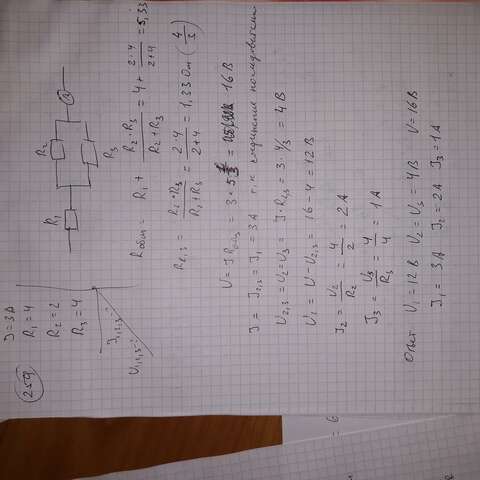 259
J = 3A
R₁ = 4
R₂ = 2
R₃ = 4
J₁, J₂, J₃ - ?
U₁, U₂, U₃ - ?
R₁
R₂
R₃
A
Rобщ = R₁ + R₂·R₃ / R₂+R₃ = 4 + 2·4 / 2+4 = 5,33
R₂,₃ = R₂·R₃ / R₂+R₃ = 2·4 / 2+4 = 1,33 Ом (4/3)
U = J Rобщ = 3 · 5 = 16 В
J = J₂,₃ = J₁ = 3A т.к соединение последовательн
U₂,₃ = U₂ = U₃ = J · R₂,₃ = 3 · 4/3 = 4 В
U₁ = U - U₂,₃ = 16 - 4 = 12 В
J₂ = U₂ / R₂ = 4 / 2 = 2 A
J₃ = U₃ / R₃ = 4 / 4 = 1 A
Ответ U₁ = 12 В U₂ = U₃ = 4 В U = 16 В
J₁ = 3 A J₂ = 2 A J₃ = 1 A
= 6